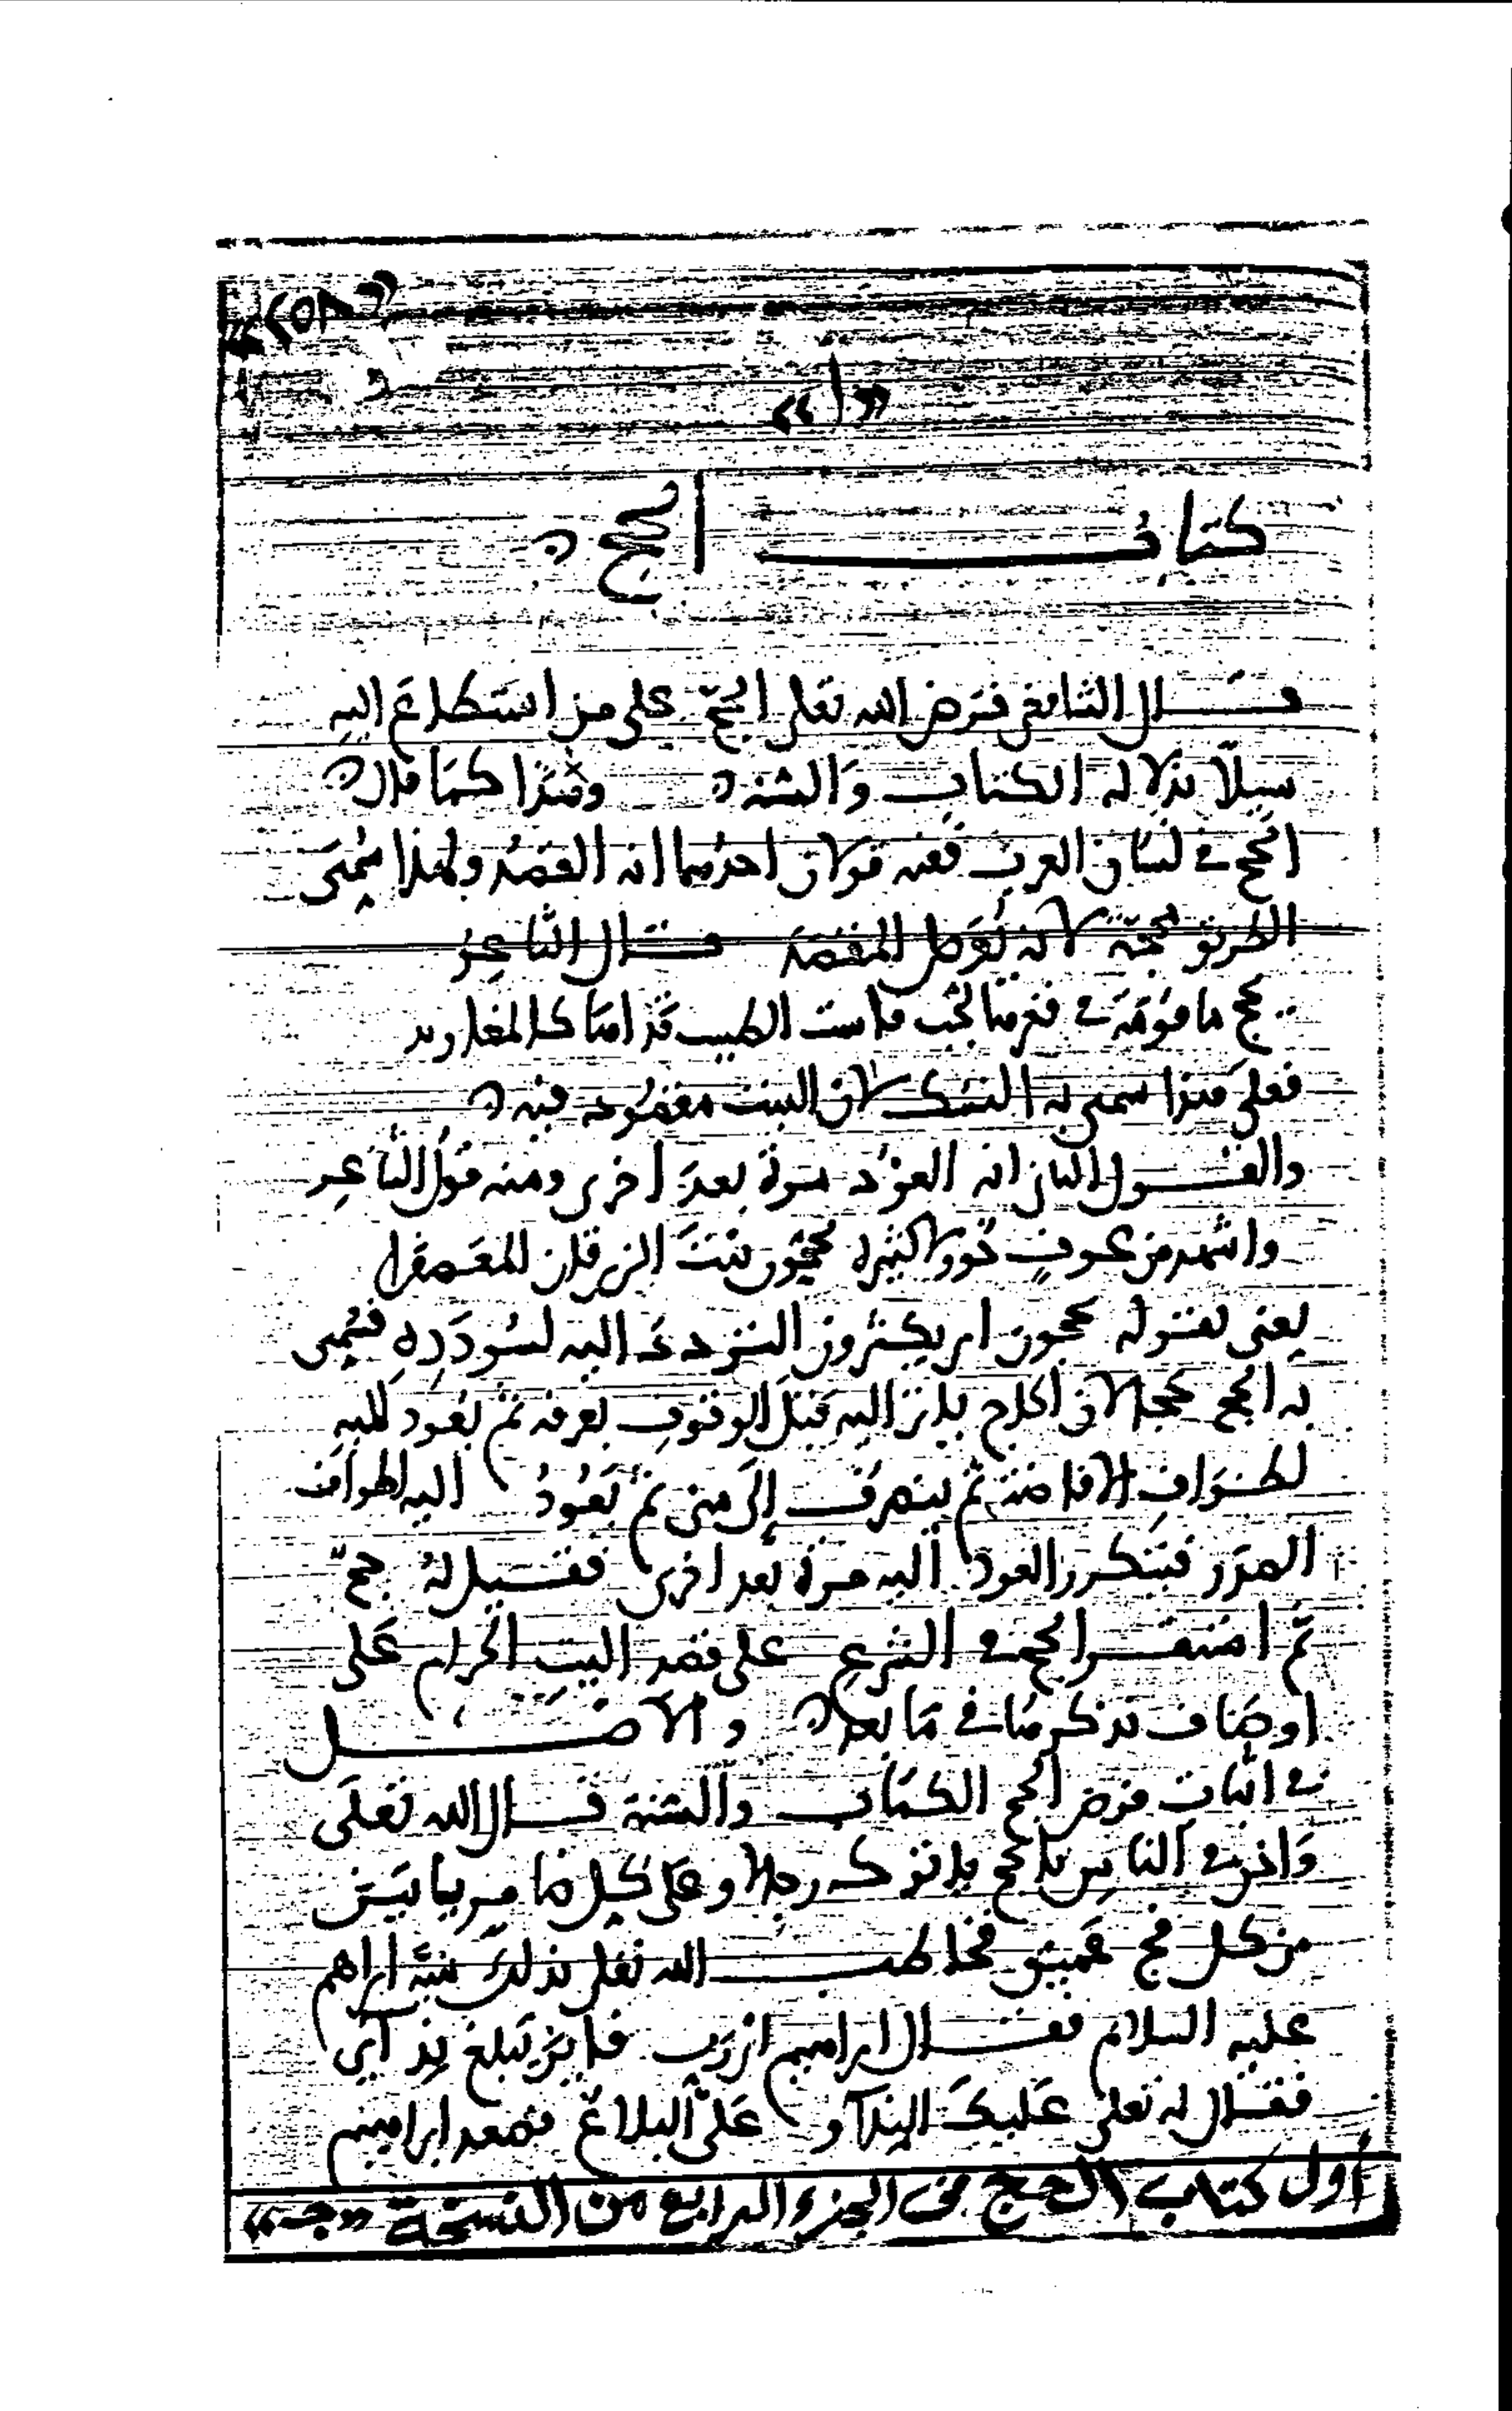 «٢٥٨»
«١»
كتاب الحج
قال الشافعي فرض الله تعلى الحج على من استطاع اليه
سبيلا بدلالة الكتاب والسنة وهذا كما قال
الحج في لسان العرب ففيه قولان احدهما انه القصد ولهذا سمي
الطريق محجة لانه يوصل المقصد قال الشاعر
يحج مامومة في قعرها لجف فاست الطبيب قذاها كالمغاريد
فعلى هذا سمي به النسك لان البيت مقصود فيه
والقول الثاني انه العود مرة بعد اخرى ومنه قول الشاعر
واشهد من عوف حوولا كثيرة يحجون بيت الزبرقان المعصفرا
يعني بقوله يحجون اي يكثرون التردد اليه لسودده فسمي
به الحج حجا لان الحاج ياتي اليه قبل الوقوف بعرفة ثم يعود اليه
لطواف الافاضة ثم ينصرف إلى منى ثم يعود اليه لطواف
الصدر فيتكرر العود اليه مرة بعد اخرى فقيل له حج
ثم استقر الحج في الشرع على قصد البيت الحرام على
اوصاف نذكرها في ما بعد والاصل
في اثبات فرض الحج الكتاب والسنة قال الله تعلى
واذن في الناس بالحج ياتوك رجالا وعلى كل ضامر ياتين
من كل فج عميق فخاطب الله تعلى بذلك نبيه ابراهيم
عليه السلام فقال ابراهيم اي رب فاين يبلغ ندآي
فقال له تعلى عليك الندآ وعلي البلاغ فصعد ابراهيم
أول كتاب الحج من الجزء الرابع من النسخة «جـ»